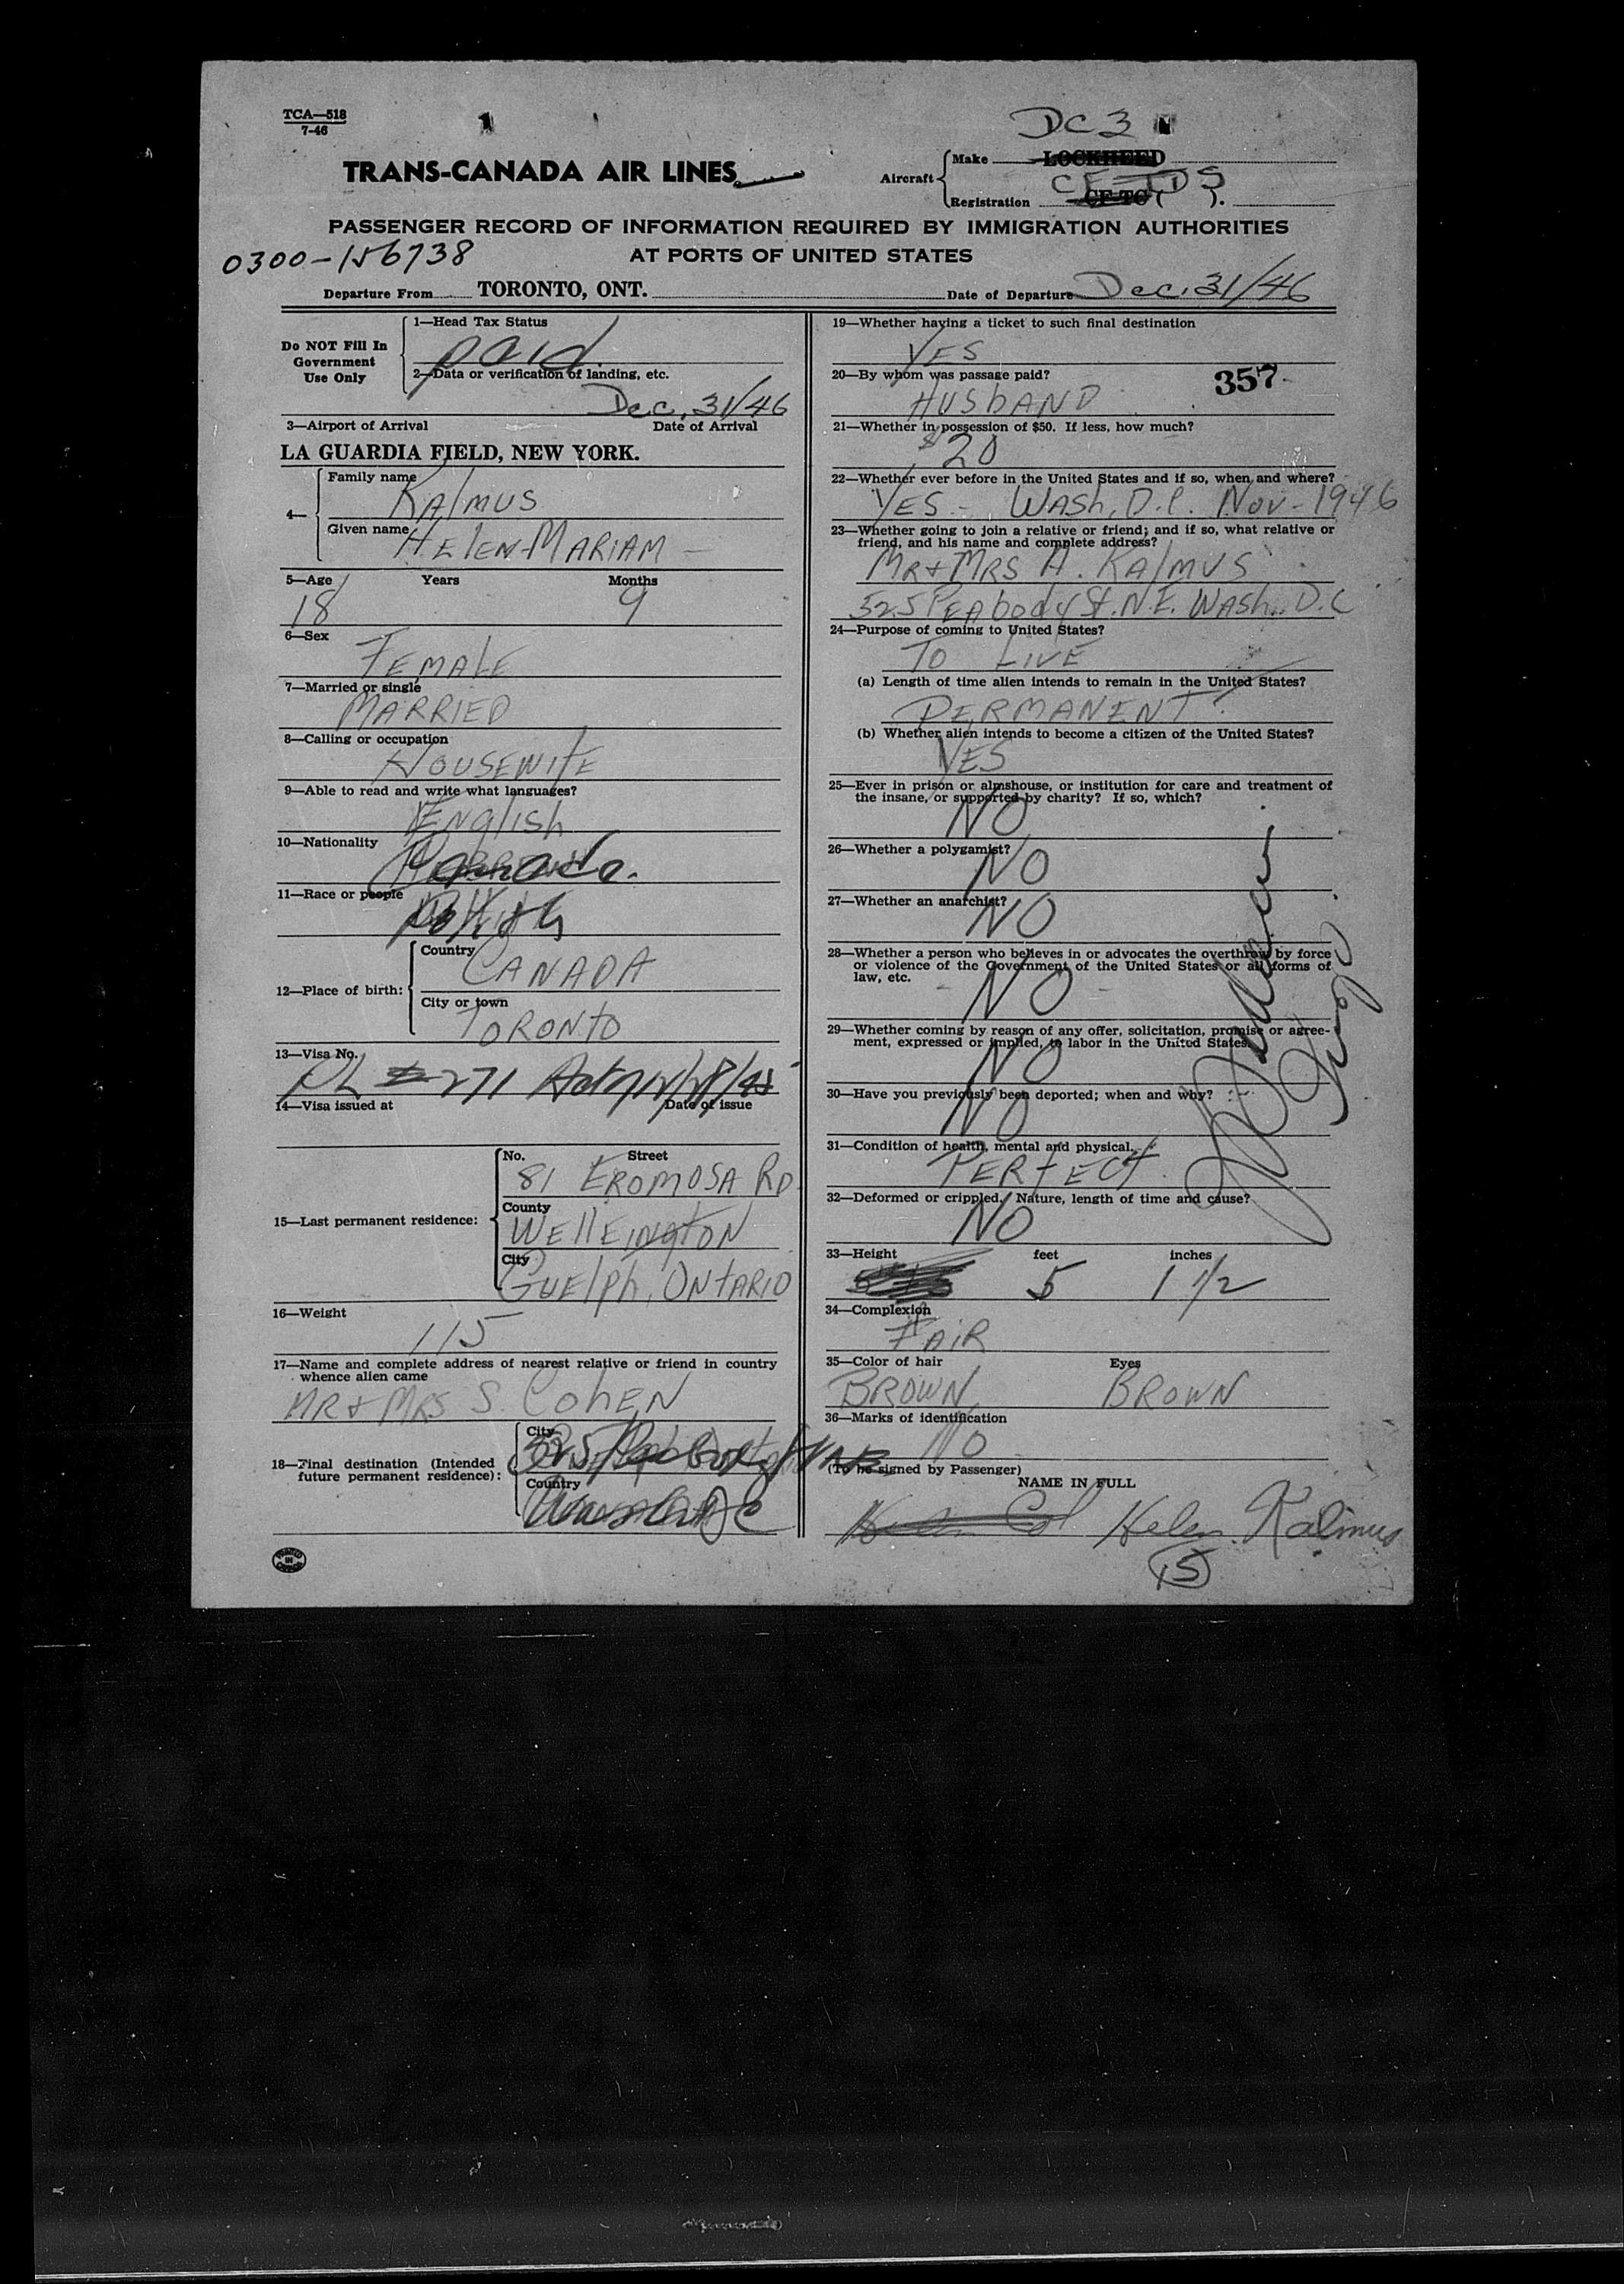 TCA—518
7-46
1
DC 3
TRANS-CANADA AIR LINES
Aircraft
Make LOCKHEED
CF-TDS
Registration CF-TC ( ).
PASSENGER RECORD OF INFORMATION REQUIRED BY IMMIGRATION AUTHORITIES
AT PORTS OF UNITED STATES
0300-156738
Departure From TORONTO, ONT. Date of Departure Dec. 31/46
Do NOT Fill In
Government
Use Only
1—Head Tax Status
paid
2—Data or verification of landing, etc.
Dec. 31/46
3—Airport of Arrival Date of Arrival
LA GUARDIA FIELD, NEW YORK.
4—
Family name
KAlMUS
Given name
HElEN MARIAM
5—Age Years Months
18 9
6—Sex
FEMALE
7—Married or single
MARRIED
8—Calling or occupation
HOUSEWIfE
9—Able to read and write what languages?
ENglish
10—Nationality
Canada.
11—Race or people
12—Place of birth:
Country
CANADA
City or town
TORONTO
13—Visa No.
271
14—Visa issued at Date of issue
15—Last permanent residence:
No. Street
81 EROMOSA RD.
County
WEllEINgTON
City
GUElph, ONTARIO
16—Weight
115
17—Name and complete address of nearest relative or friend in country
whence alien came
MR & MRS S. COhEN
18—Final destination (Intended
future permanent residence):
City
525 Peabody St NE
Country
Wash DC
19—Whether having a ticket to such final destination
YES
20—By whom was passage paid?
357
HUSbAND
21—Whether in possession of $50. If less, how much?
$20
22—Whether ever before in the United States and if so, when and where?
YES - WASh, D.C. NOV-1946
23—Whether going to join a relative or friend; and if so, what relative or
friend, and his name and complete address?
MR & MRS A. KAlMUS
525 PEAbody St. N.E. WASh. D.C
24—Purpose of coming to United States?
TO LIVE
(a) Length of time alien intends to remain in the United States?
PERMANENT
(b) Whether alien intends to become a citizen of the United States?
YES
25—Ever in prison or almshouse, or institution for care and treatment of
the insane, or supported by charity? If so, which?
NO
26—Whether a polygamist?
NO
27—Whether an anarchist?
NO
28—Whether a person who believes in or advocates the overthrow by force
or violence of the Government of the United States or all forms of
law, etc.
NO
29—Whether coming by reason of any offer, solicitation, promise or agree-
ment, expressed or implied, to labor in the United States.
NO
30—Have you previously been deported; when and why?
NO
31—Condition of health, mental and physical.
PERfECT
32—Deformed or crippled. Nature, length of time and cause?
NO
33—Height feet inches
5 1 1/2
34—Complexion
FAIR
35—Color of hair Eyes
BROWN BROWN
36—Marks of identification
NO
(To be signed by Passenger)
NAME IN FULL
Helen Kalmus
15
PRINTED
IN
CANADA